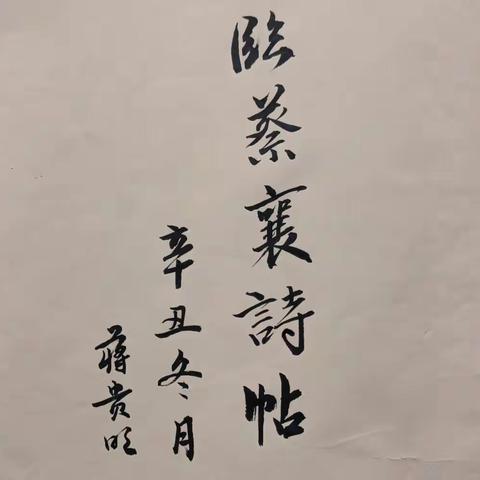 臨蔡襄詩帖
辛丑冬月
蒋贵明